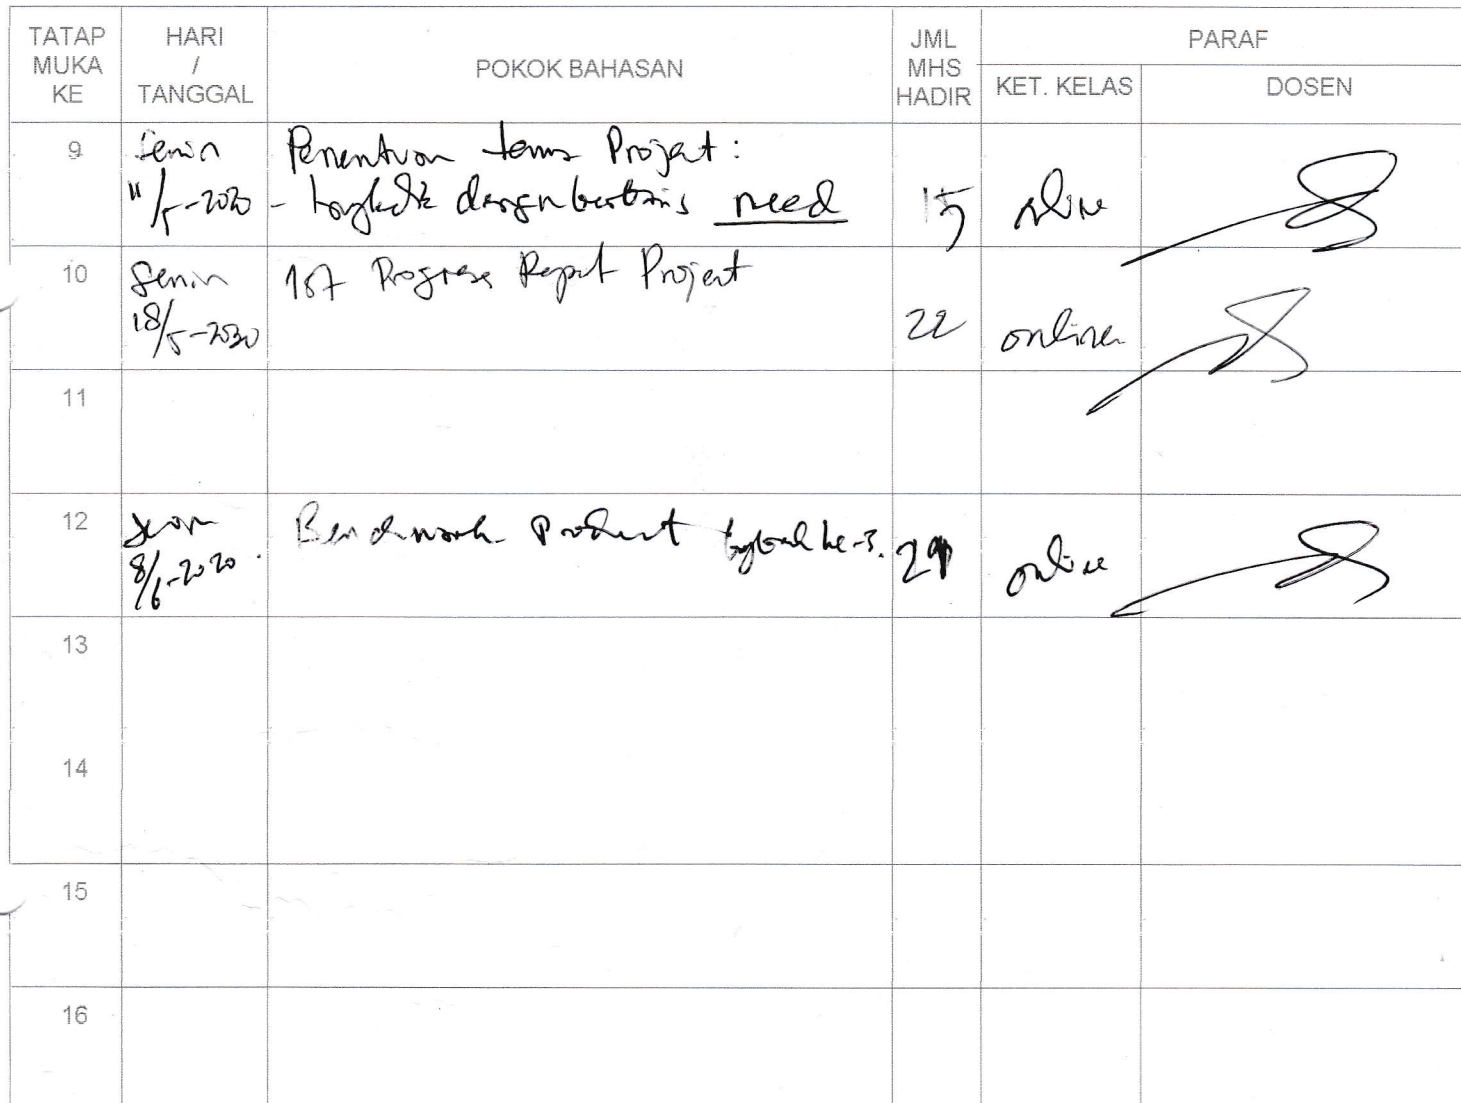 TATAP MUKA KE
HARI / TANGGAL
POKOK BAHASAN
JML MHS HADIR
PARAF
KET. KELAS
DOSEN
9
Senin
11/5-2020
Penentuan Project:
- need
15
online
10
Senin
18/5-2020
1st Progress Report Project
22
online
11
12
8/6-2020.
Benchmark Product ke-3.
online
13
14
15
16